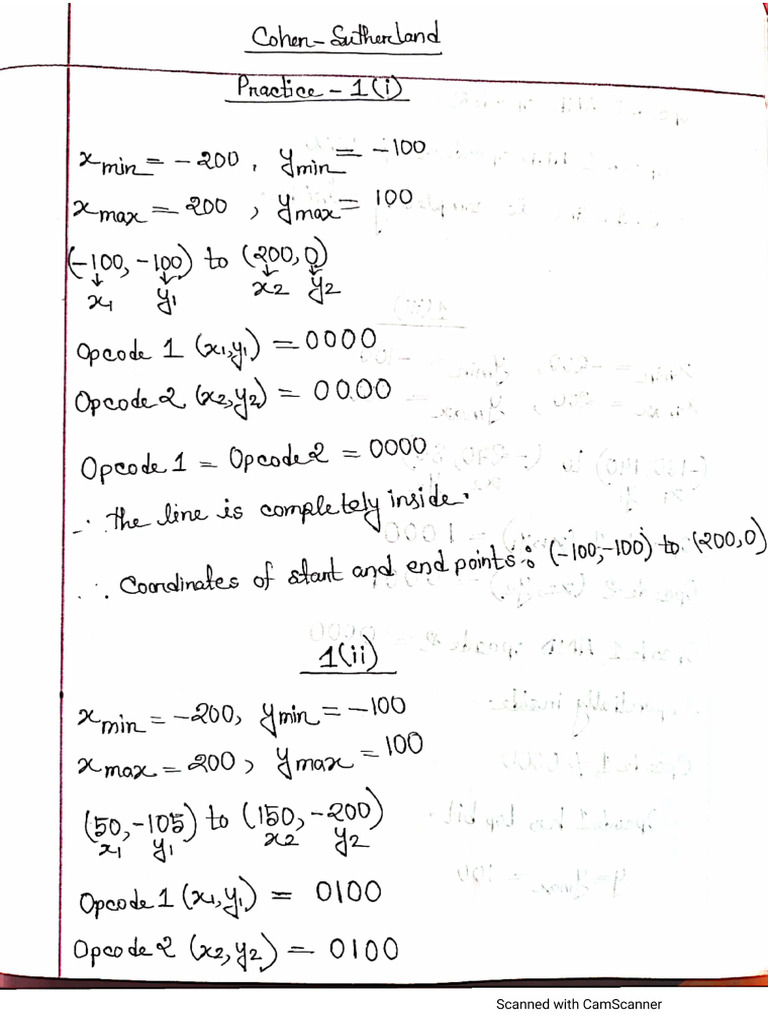 Cohen-Sutherland
Practice - 1(i)
x min = -200, y min = -100
x max = 200, y max = 100
(-100, -100) to (200, 0)
↓ ↓ ↓ ↓
x1 y1 x2 y2
Opcode 1 (x1,y1) = 0000
Opcode 2 (x2,y2) = 0000
Opcode 1 = Opcode 2 = 0000
∴ the line is completely inside.
∴ Coordinates of start and end points: (-100,-100) to (200,0)
1(ii)
x min = -200, y min = -100
x max = 200, y max = 100
(50,-105) to (150,-200)
x1 y1 x2 y2
Opcode 1 (x1,y1) = 0100
Opcode 2 (x2,y2) = 0100
Scanned with CamScanner